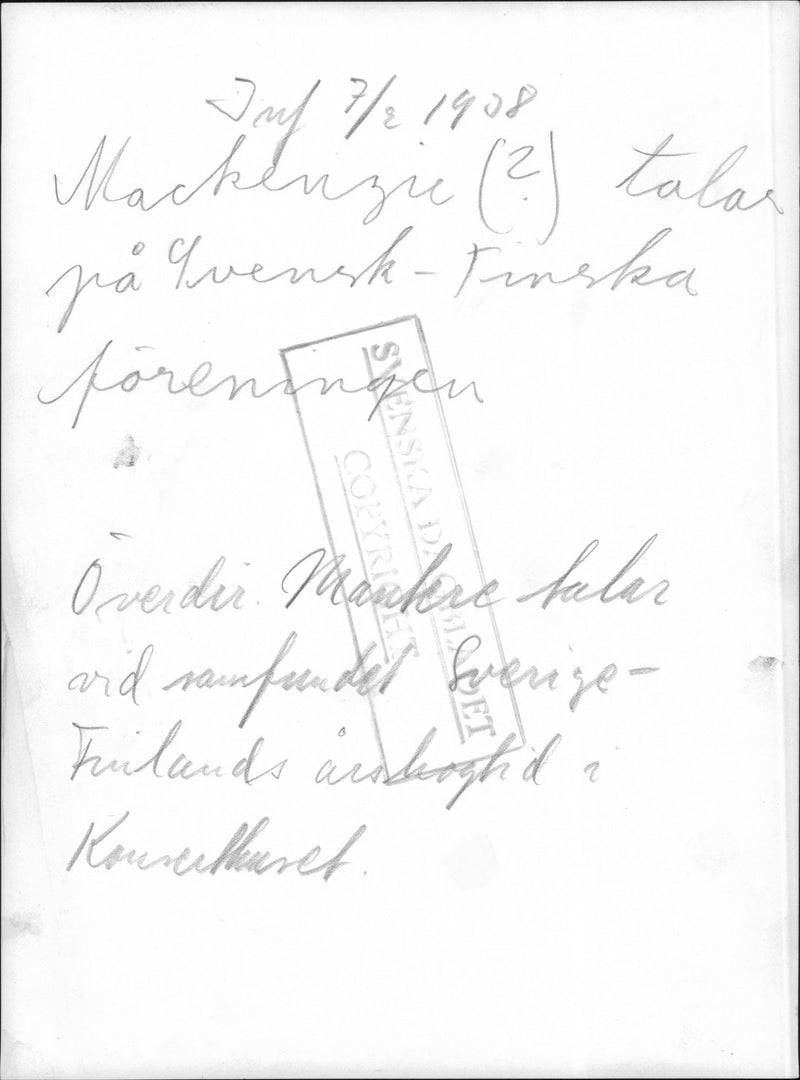 Inf 7/2 1938
Mackenzie (?) talar
på Svensk-Finska
föreningen
SVENSKA DAGBLADET
COPYRIGHT
Överdir. Mantere talar
vid samfundet Sverige-
Finlands årshögtid i
Konserthuset.